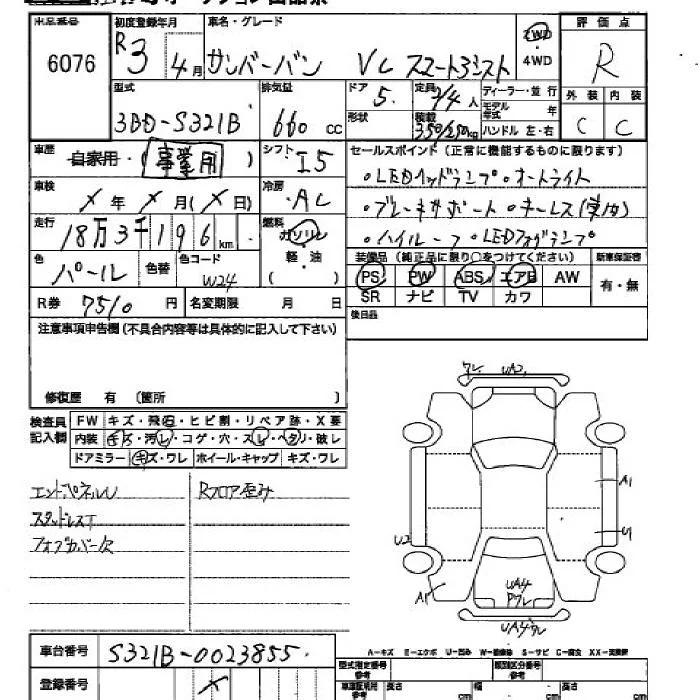 出品番号 初度登録年月 車名・グレード 評価点
6076 R3 4月 サンバーバン VC スマートアシスト 2WD・4WD R
型式 排気量 ドア 定員 ディーラー・並行
3BD-S321B 660cc 5 2/4人 モデル年式 年 外装 内装
形状 積載 350/250kg ハンドル 左・右 C C
車歴 自家用・(事業用) シフト I5 セールスポイント(正常に機能するものに限ります)
車検 X年 X月(X日) 冷房 AC ・LEDヘッドランプ・オートライト
走行 18万3千196km 燃料 ガソリン・軽・油 ・ブレーキサポート・キーレス
・ハイルーフ・LEDフォグランプ
色 パール 色替 色コード W24 装備品(純正品に限り○をつけてください) 新車保証書
PS PW ABS エアB AW 有・無
R券 7510円 名変期限 月 日 SR ナビ TV カワ
後日品
注意事項申告欄(不具合内容等は具体的に記入して下さい)
修復歴 有 (箇所 )
検査員記入欄 FW キズ・飛石・ヒビ割・リペア跡・X要
内装 キズ・汚レ・コゲ・穴・スレ・ヘタリ・破レ
ドアミラー キズ・ワレ ホイール・キャップ キズ・ワレ
エンドパネルU Rフロア歪み
スタッドレスT
フォグカバー欠
ワレ UA2
A1
U2 U1
A1
UA4
Pワレ
UA4ワレ
A-キズ E-エクボ U-凹み S-サビ C-腐食
車台番号 S321B-0023855 型式指定番号 参考 類別区分番号 参考
登録番号 X 長さ cm 幅 cm 高さ cm